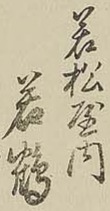 若松屋内
若鶴